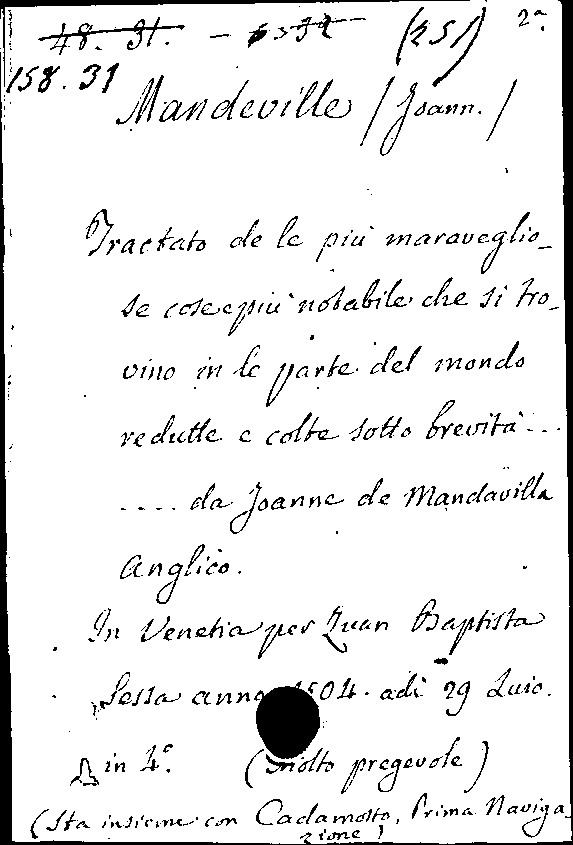 48. 31. - 6332 (251) 2ª
158.31
Mandeville (Joann.)
Tractato de le più maraveglio_
se cose e più notabile che si tro_
vino in le parte del mondo
redutte e colte sotto brevità ...
.... da Joanne de Mandavilla
Anglico.
In Venetia per Zuan Baptista
Sessa anno 1504. adi 29 Luio.
in 4.° (Molto pregevole)
(Sta insieme con Cadamosto, Prima Naviga_
zione)